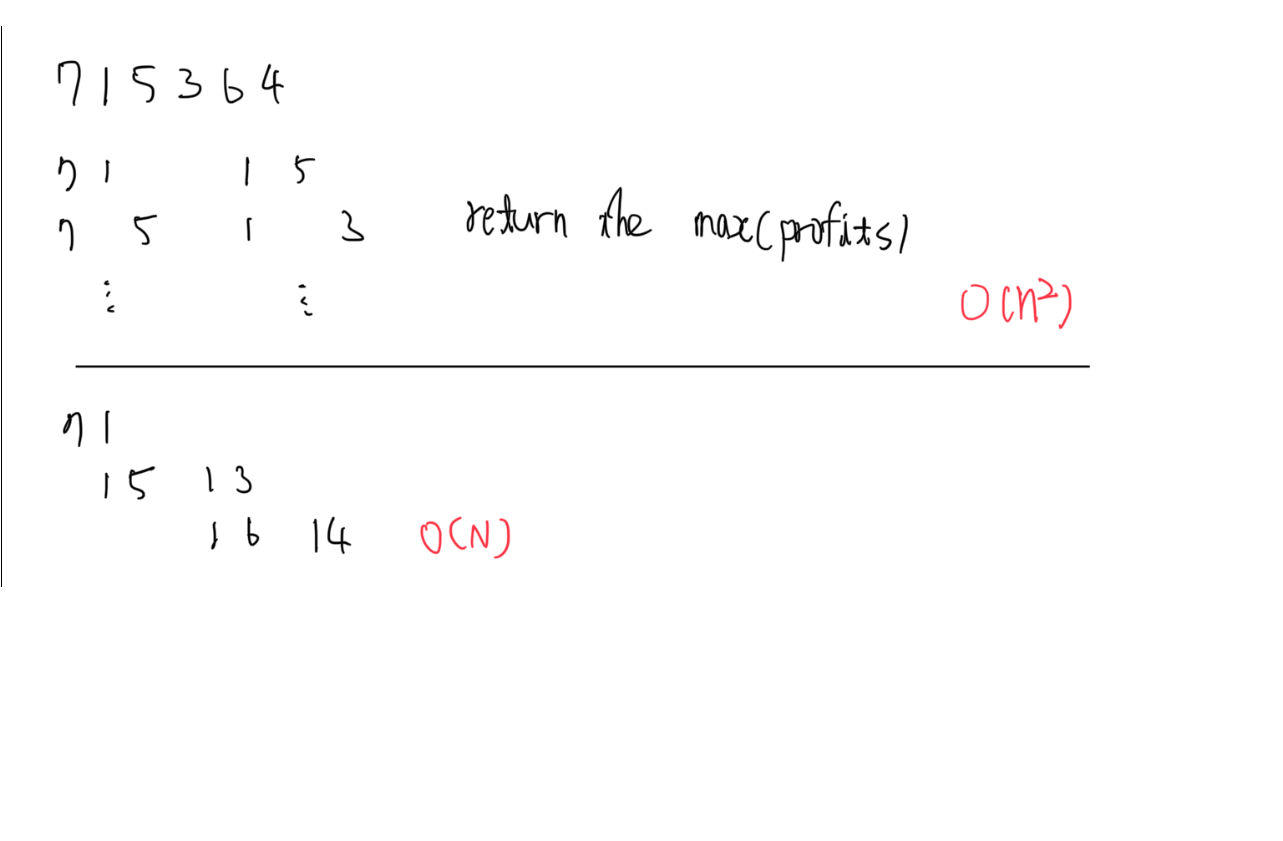 7 1 5 3 6 4
7 1 1 5
7 5 1 3 return the max(profits)
⋮ ⋮ O(n²)
7 1
1 5 1 3
1 6 1 4 O(N)